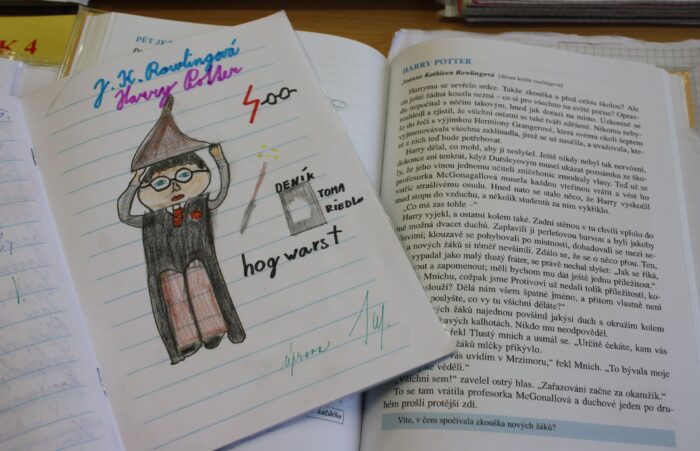 K 4
PĚT JEŠ
J. K. Rowlingová
Harry Potter
DENÍK
TOMA
hogwarst
úprava
každého
HARRY POTTER
Joanne Kathleen Rowlingová [džoan ketlin roulingová]
Harrymu se sevřelo srdce. Takže zkouška a před celou školou? Ale
on ještě žádná kouzla nezná – co si pro všechno na světě počne? Oprav-
du nepočítal s něčím takovým, hned jak dorazí na místo. Úzkostně se
rozhlédl a zjistil, že všichni ostatní se také tváří zděšeně. Nikomu neby-
lo do řeči s výjimkou Hermiony Grangerové, která svému okolí šeptem
vyjmenovávala všechna zaklínadla, jimiž se už naučila, a uvažovala, kte-
z nich teď bude potřebovat.
Harry dělal, co mohl, aby ji neslyšel. Ještě nikdy nebyl tak nervózní,
dokonce ani tenkrát, když Dursleyovým musel ukázat poznámku ze ško-
ly, že jeho vinou jednomu učiteli zničehonic zmodraly vlasy. Teď už se
profesorka McGonagallová musela každou vteřinou vrátit a vést ho
vstříc strašlivému osudu. Hned nato se stalo něco, že Harry vyskočil
snad stopu do vzduchu, a několik studentů za ním vykřiklo.
„Co má zas tohle –“
Harry vyjekl, a ostatní kolem také. Zadní stěnou v tu chvíli vplulo do
možná dvacet duchů. Zaplavili ji perleťovou barvou a byli jakoby
klouzavě se pohybovali po místnosti, dohadovali se mezi se-
a nových žáků si téměř nevšimli. Zdálo se, že se o něco přou. Ten,
vypadal jako malý tlustý fráter, se právě nechal slyšet: „Jak se říká,
out a zapomenout; měli bychom mu dát ještě jednu příležitost.“
Mnichu, cožpak jsme Protivovi už nedali tolik příležitostí, ko-
slouží? Dělá nám všem špatné jméno, a přitom vlastně není
poslyšte, co vy tu všichni děláte?“
žáků najednou povšiml jakýsi duch s okružím kolem
kavých kalhotách. Nikdo mu neodpověděl.
řekl Tlustý mnich a usmál se. „Určitě čekáte, kam vás
žáků mlčky přikývlo.
vás uvidím v Mrzimoru,“ řekl Mnich. „To bývala moje
věděli.“
„Všichni sem!“ zavelel ostrý hlas. „Zařazování začne za okamžik.“
To se tam vrátila profesorka McGonallová a duchové jeden po dru-
hém prošli protější zdí.
Víte, v čem spočívala zkouška nových žáků?